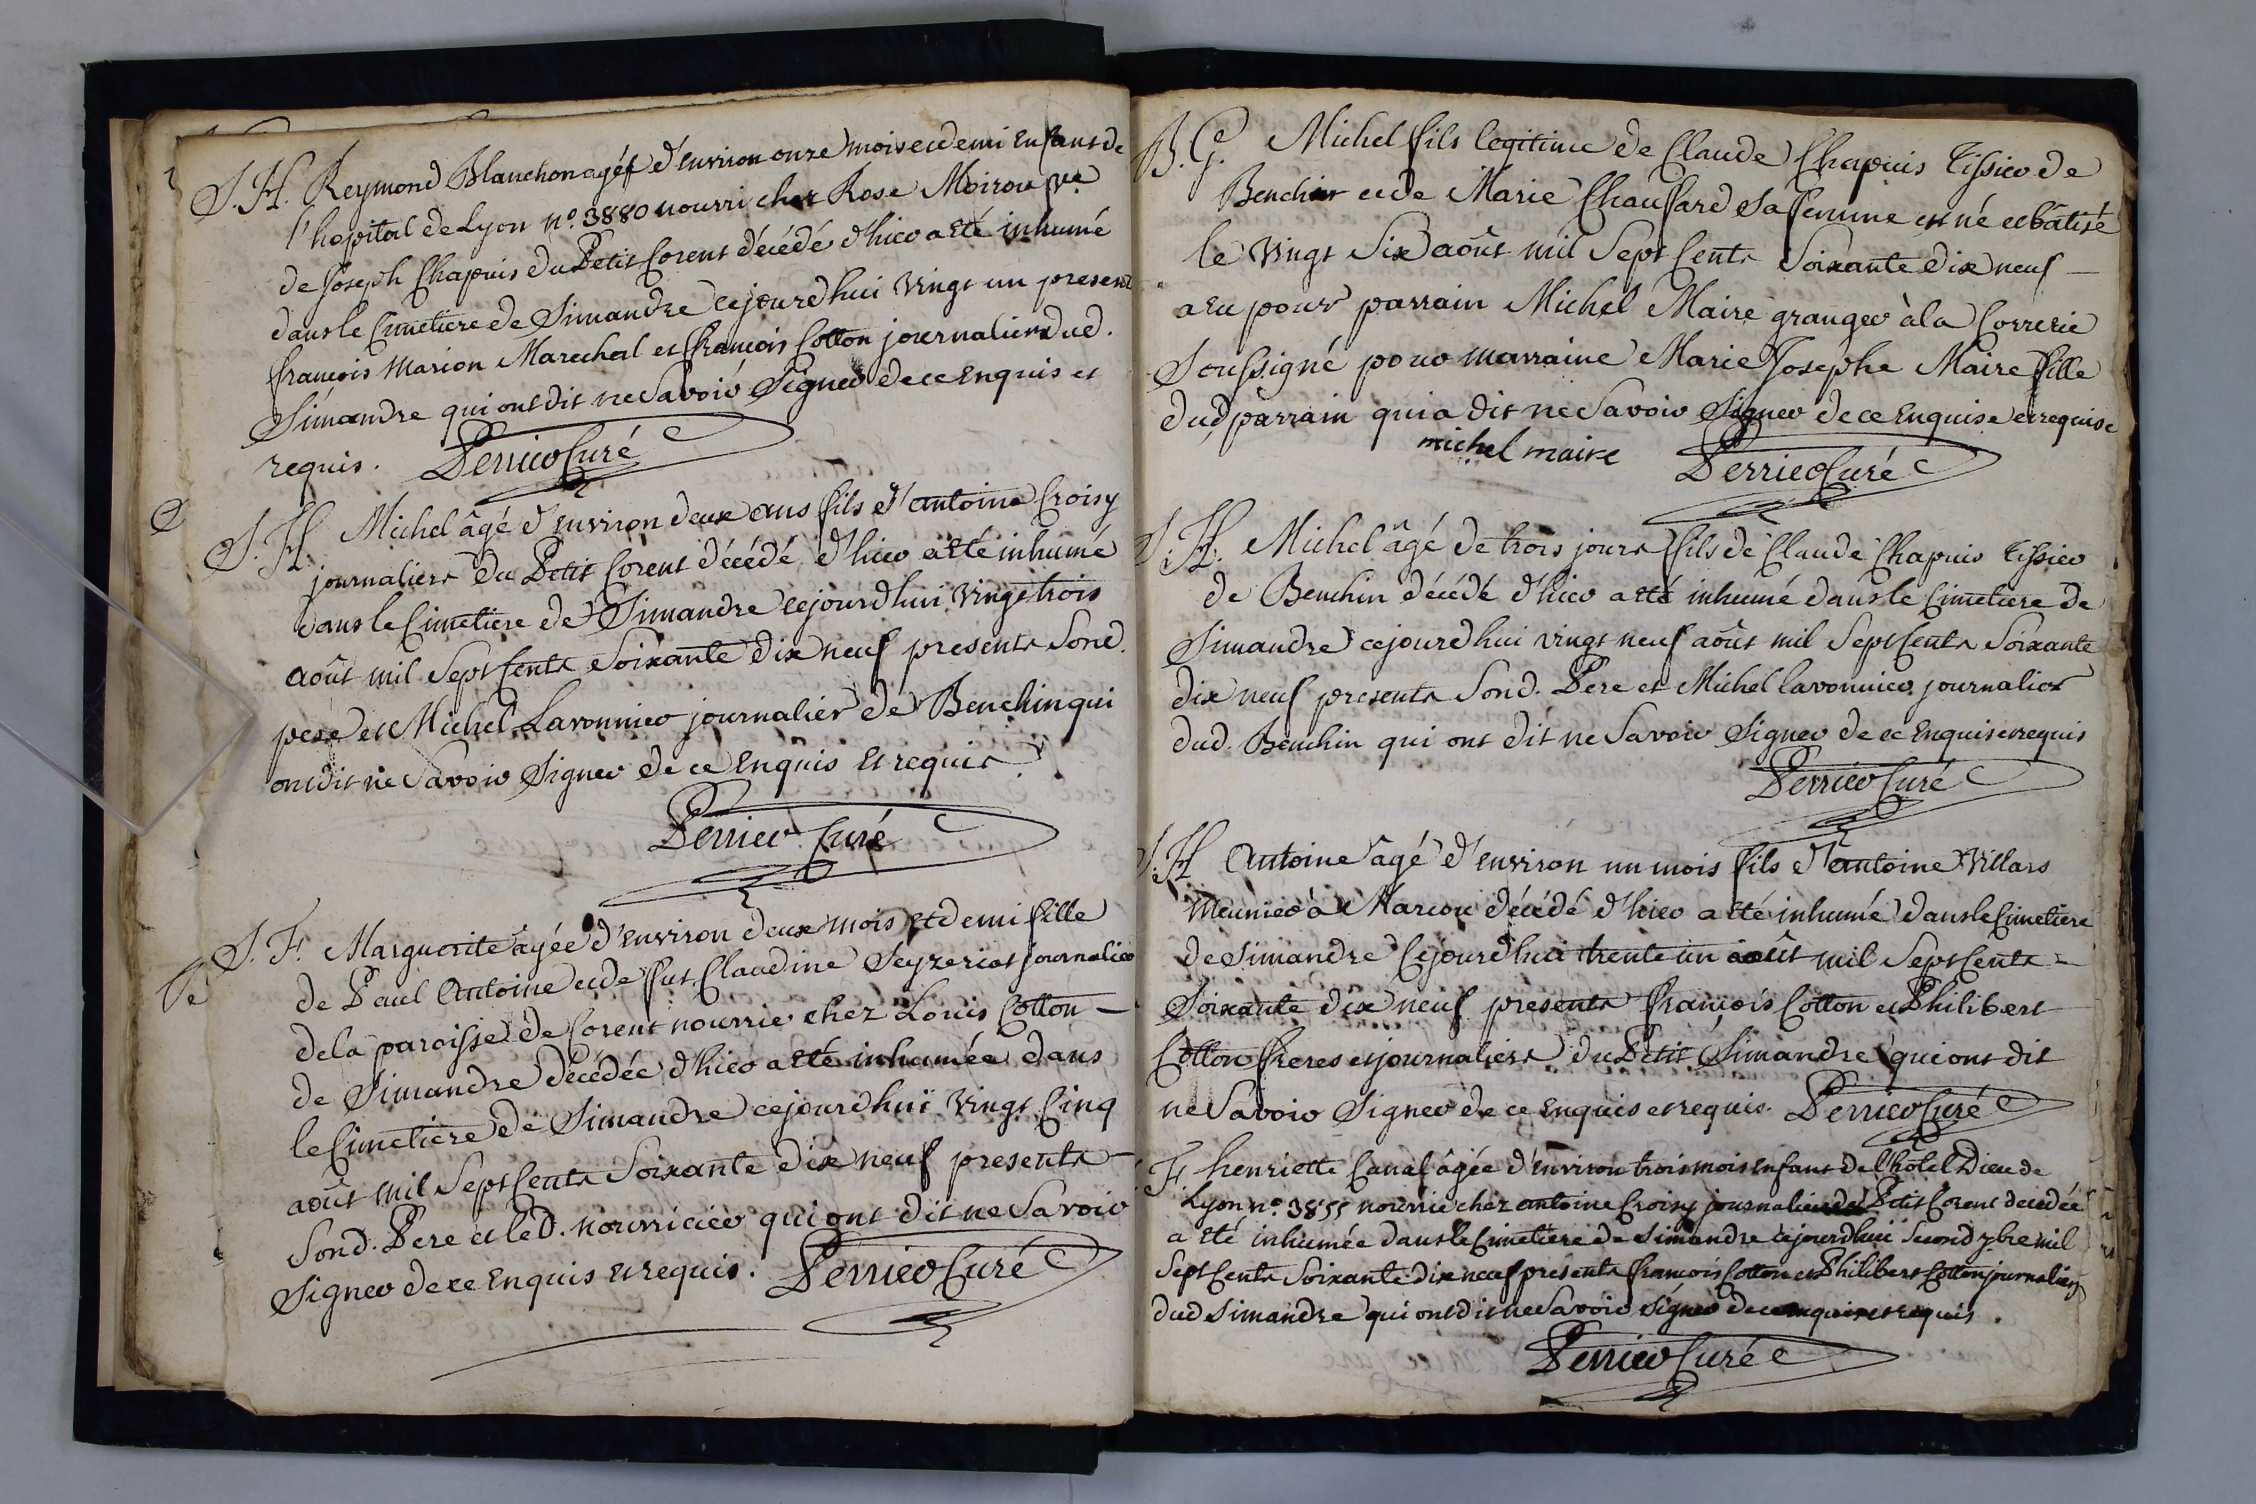 S. H. Reymond Blanchon agéf d'environ onze mois et demi Enfant de
l'hopital de Lyon n.º 3880 nourri chez Rose Moirou vᵉ
de Joseph Chapuis du Petit Corent décédé d'hier a Eté inhumé
dans le Cimetiere de Simandre cejourdhui vingt un present
françois Marion Marechal et françois Cotton journaliers dud.
Simandre qui ont dit ne Savoir Signer de ce Enquis et
requis. Perrier Curé
S. H. Michel âgé d'environ deux ans fils d'antoine Croisy
journaliers du Petit Corent décédé d'hier a Eté inhumé
dans le Cimetiere de Simandre cejourdhui vingt trois
août mil Sept Cents Soixante dix neuf presents Sond.
pere et Michel Lavonnier journalier de Benchin qui
ont dit ne Savoir Signer de ce Enquis Et requis
Perrier Curé
S. F. Marguerite agée d'environ deux mois et demi fille
de Paul Antoine et de fut Claudine Seyzeriat journalier
dela paroisse de Corent nourrie chez Louis Cotton —
de Simandre décédée d'hier a Eté inhumée dans
le Cimetiere de Simandre cejourdhui vingt Cinq
août mil Sept Cents Soixante dix neuf presents —
Sond. Pere et led. nourricier qui ont dit ne Savoir
Signer de ce Enquis Et requis. Perrier Curé
B. G. Michel fils legitime de Claude Chapuis Tissier de
Benchin et de Marie Chauffard Sa femme est né et bâtisé
le vingt Six août mil Sept Cents Soixante dix neuf —
a eu pour parrain Michel Maire granger à la Correrie
Soussigné pour marraine Marie Josephe Maire fille
dud parrain qui a dit ne Savoir Signer de ce Enquise et requise
michel maire Perrier Curé
S. H. Michel âgé de trois jours fils de Claude Chapuis Tissier
de Benchin décédé d'hier a Eté inhumé dans le Cimetiere de
Simandre cejourdhui vingt neuf août mil Sept Cents Soixante
dix neuf presents Sond. Pere et Michel lavonnier journalier
dud. Benchin qui ont dit ne Savoir Signer de ce Enquis et requis
Perrier Curé
S. H Antoine âgé d'environ un mois fils d'antoine Villars
Meunier à Marcou décédé d'hier a Eté inhumé dans le Cimetiere
de Simandre Cejourdhui trente un août mil Sept Cents =
Soixante dix neuf presents françois Cotton et Philibert
Cotton freres et journaliers du Petit Simandre qui ont dit
ne Savoir Signer de ce Enquis et requis. Perrier Curé
F. henriette Canal âgée d'environ trois mois Enfant de l'hôtel Dieu de
Lyon n.º 3855 nourrie chez antoine Croisy journalier du Petit Corent decedée
a Eté inhumée dans le Cimetiere de Simandre cejourdhui Second 7bre mil
Sept Cents Soixante dix neuf présents françois Cotton et Philibert Cotton journaliers
dud Simandre qui ont dit ne Savoir Signer de ce enquis et requis.
Perrier Curé